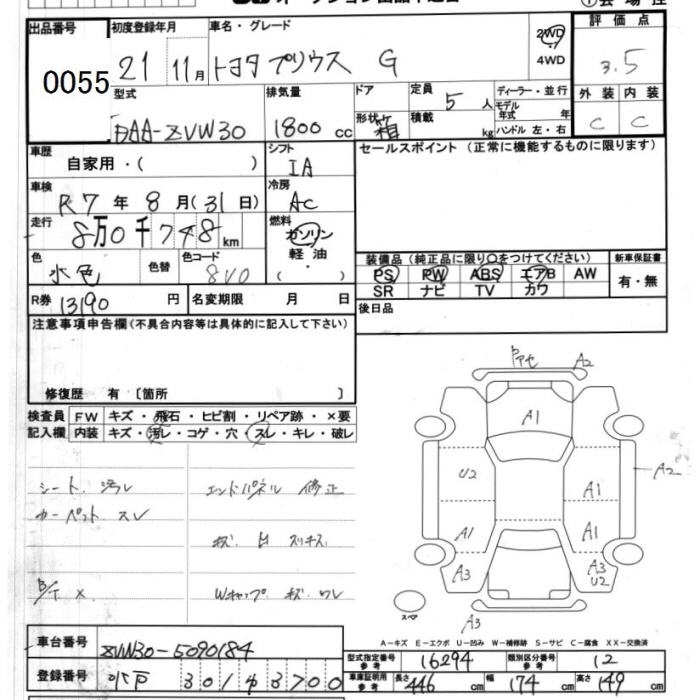 出品番号 初度登録年月 車名・グレード 2WD 評価点
0055 21 11月 トヨタプリウス G 4WD 3.5
型式 排気量 ドア 定員 5人 ディーラー・並行 外装 内装
DAA-ZVW30 1800cc 形状 箱 積載 kg モデル年式 年 C C
ハンドル 左・右
車歴 シフト セールスポイント (正常に機能するものに限ります)
自家用・( ) IA
車検 冷房
R7年8月(31日) AC
走行 燃料
8万0千748km ガソリン
軽油
色 色替 色コード ・
水色 8V0 ( )
装備品(純正品に限り○をつけてください) 新車保証書
PS PW ABS エアB AW 有・無
SR ナビ TV カワ
R券 13190円 名変期限 月 日
後日品
注意事項申告欄(不具合内容等は具体的に記入して下さい)
修復歴 有 〔箇所 〕
検査員 FW キズ・飛石・ヒビ割・リペア跡・×要
記入欄 内装 キズ・汚レ・コゲ・穴・スレ・キレ・破レ
シート 汚レ エンドパネル 修正
カーペット スレ
キズ 凹 スリキズ
B/T × Wキャップ キズ ワレ
A2
A1
U2 A1 A2
A1 A1
A3 A3
U2
スペア
A3
A-キズ E-エクボ U-凹み W-補修跡 S-サビ C-腐食 XX-交換済
車台番号 ZVW30-5090184
型式指定番号 参考 16294 類別区分番号 参考 12
登録番号 水戸 301 43700
車庫証明用 参考 長さ 446cm 幅 174cm 高さ 149cm